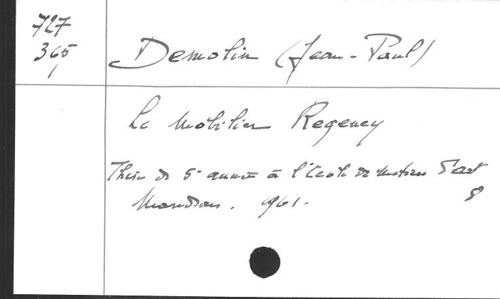 727
365
Demolin (Jean-Paul)
Le Mobilier Regency
Thèse de 5e année à l'école de métiers d'art
1961.
8